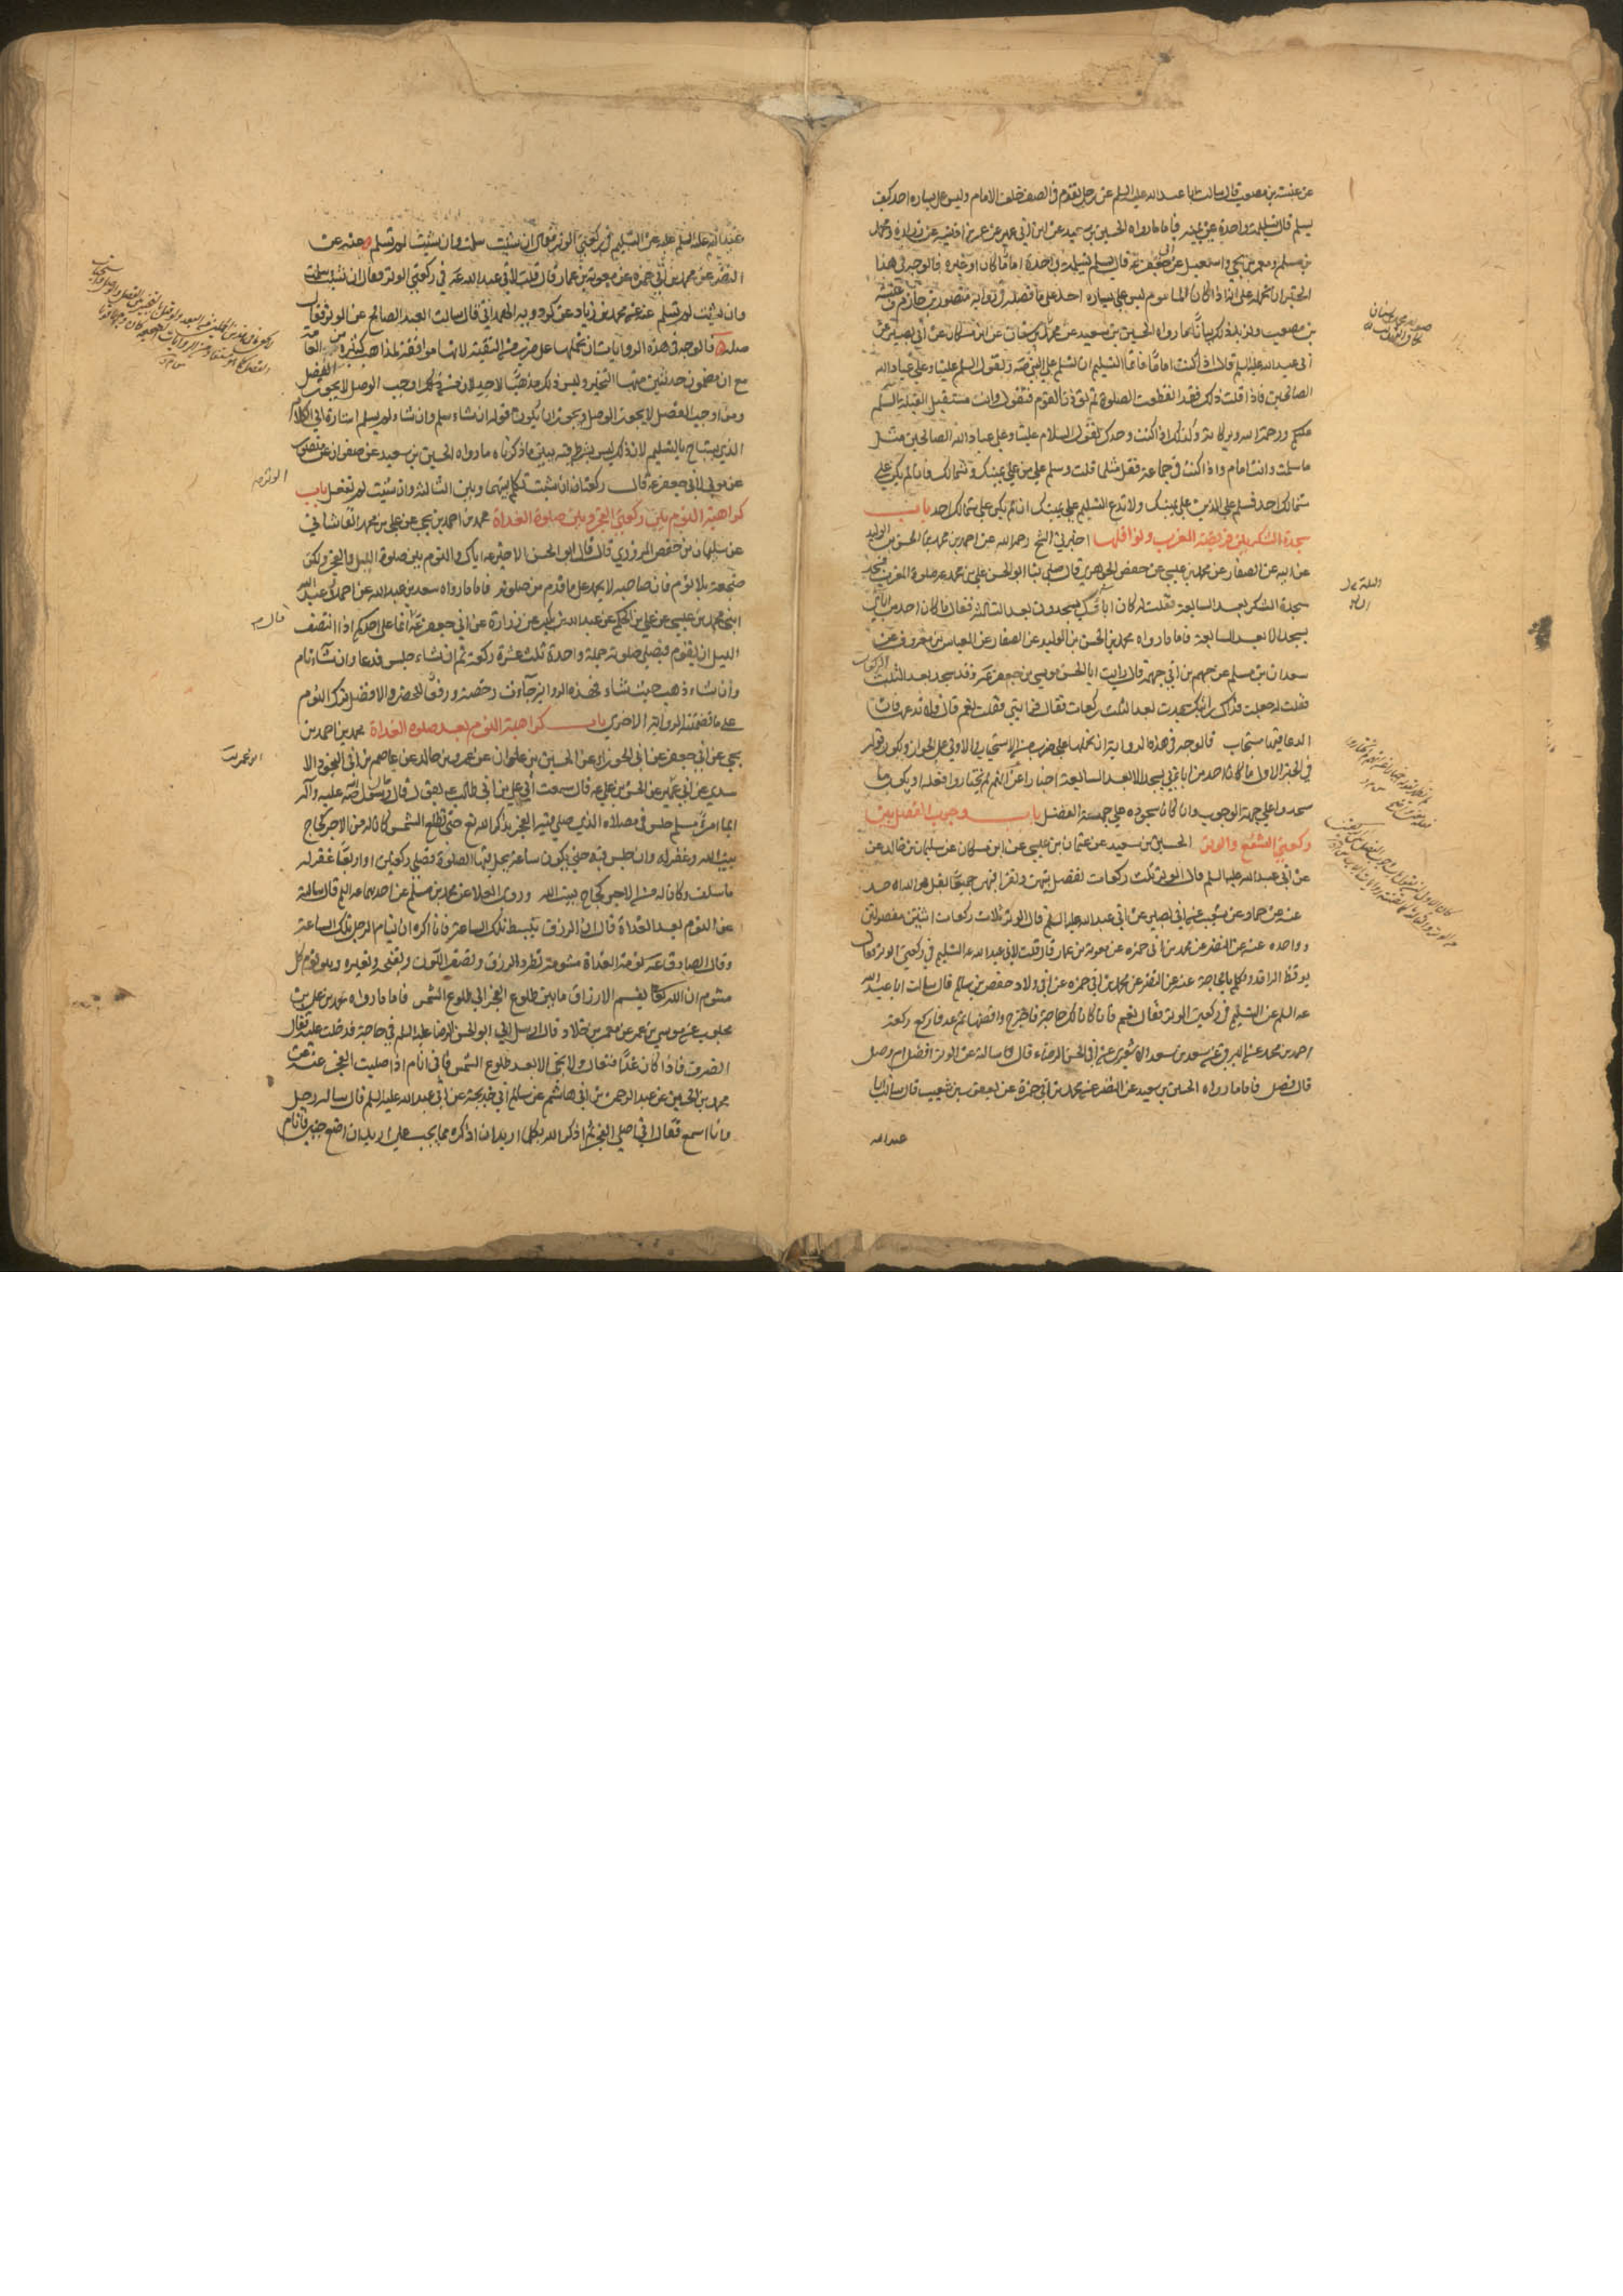 عن عنبسة بن مصعب قال سالت ابا عبد الله عليه السلم عن رجل تقوم في الصف خلف الامام وليس على يساره احد كيف
يسلم قال تسليمة واحدة عن يمينه فاما ما رواه الحسين بن سعيد عن ابن ابي عمير عن عمر بن اذينه عن زرارة ومحمد
بن مسلم ومعمر بن يحيى واسمعيل عن ابي جعفر عه قال يسلم تسليمة واحدة اماما كان او غيره فالوجه في هذا
الخبر ان نحمله على انه اذا كان الماموم ليس على يساره احد على ما فصله في رواية منصور بن حازم وعنبسة
بن مصعب ويزيد ذلك بيانا ما رواه الحسين بن سعيد عن محمد بن سنان عن ابن مسكان عن ابي بصير عن
ابي عبد الله عليه السلم قال اذا كنت اماما فانما التسليم ان تسلم على النبي صه وتقول السلم علينا وعلى عباد الله
الصالحين فاذا قلت ذلك فقد انقطعت الصلوة ثم تؤذن القوم فتقول وانت مستقبل القبلة السلم
عليكم ورحمة الله وبركاته وكذلك اذا كنت وحدك تقول السلام علينا وعلى عباد الله الصالحين مثل
ما سلمت وانت امام واذا كنت في جماعة فقل مثلما قلت وسلم على من على يمينك وشمالك فان لم يكن على
شمالك احد فسلم على الذين على يمينك ولا تدع التسليم على يمينك ان لم يكن على شمالك احد باب
سجدة الشكر بين فريضة المغرب ونوافلها اخبرني الشيخ رحمه الله عن احمد بن محمد عن الحسن بن الوليد
عن ابيه عن الصفار عن محمد بن عيسى عن حفص الجوهري قال صلى بنا ابو الحسن علي بن محمد عه صلوة المغرب فسجد
سجدة الشكر بعد السابعة فقلت له كان اباؤك يسجدون بعد الثالثة فقال ما كان احد من ابائي
يسجد الا بعد السابعة فاما ما رواه محمد بن الحسن بن الوليد عن الصفار عن العباس بن معروف عن
سعدان بن مسلم عن جهم بن ابي جهمة قال رايت ابا الحسن موسى بن جعفر عه وقد سجد بعد الثلث
فقلت له جعلت فداك رايتك سجدت بعد الثلث ركعات فقال رايتني فقلت نعم قال فلا تدعها فان
الدعا فيها مستجاب فالوجه في هذه الرواية ان نحملها على ضرب من الاستحباب والاولى على الجواز ويكون قوله
في الخبر الاول ما كان احد من ابائي يسجد الا بعد السابعة اخبارا عن انهم لم يختاروا فعله او يكون ما
سجدوا على جهة الوجوب وان كان سجوده على جهة الفضل باب وجوب الفصل بين
ركعتي الشفع والوتر الحسين بن سعيد عن عثمان بن عيسى عن ابن مسكان عن سليمان بن خالد عن
عن ابي عبد الله عليه السلم قال الوتر ثلث ركعات تفصل بينهن وتقرا فيهن جميعا بقل هو الله احد
عنه عن حماد عن شعيب عن ابي بصير عن ابي عبد الله عليه السلم قال الوتر ثلاث ركعات اثنتين مفصولتين
وواحده عنه عن النضر عن محمد بن ابي حمزه عن معوية بن عمار قال قلت لابي عبد الله عه التسليم في ركعتي الوتر فقال
يوقظ الراقد ويكلم بالحاجة عنه عن النضر عن محمد بن ابي حمزه عن ابي ولاد حفص بن سالم قال سالت ابا عبد الله
عه السلم عن التسليم في ركعتي الوتر فقال نعم فان كان لك حاجة فاخرج واقضها ثم عد فاركع ركعة
احمد بن محمد عن البرقي عن سعد بن سعد الاشعري عن ابي الحسن الرضاء قال سالته عن الوتر افضل ام وصل
قال فصل فاما ما رواه الحسين بن سعيد عن النضر عن محمد بن ابي حمزة عن يعقوب بن شعيب قال سالت ابا
عبد الله
عبد الله عليه السلم عن التسليم في ركعتي الوتر فقال ان شئت سلمت وان شئت لم تسلم وعنه عن
النضر عن محمد بن ابي حمزة عن معوية بن عمار قال قلت لابي عبد الله عه في ركعتي الوتر فقال ان شئت سلمت
وان شئت لم تسلم عنه عن محمد بن زياد عن كردويه الهمداني قال سالت العبد الصالح عن الوتر فقال
صله فالوجه في هذه الروايات ان نحملها على ضرب من التقية لانها موافقة لمذاهب كثيره من العامة
مع ان مضمون حديثين منها التخيير وليس ذلك مذهبا لاحد لان من اوجب الوصل لا يجوز الفصل
ومن اوجب الفصل لا يجوز الوصل ويجوز ان يكون قوله ان شاء سلم وان شاء لم يسلم اشارة الى الكلام
الذي يستباح بالتسليم لان ذلك ليس بشرط فيه يبين ما ذكرناه ما رواه الحسين بن سعيد عن صفوان عن منصور
عن مولى لابي جعفر عه قال ركعتان ان شئت تكلم بينهما وبين الثالثة وان شئت لم تفعل باب
كراهية النوم بين ركعتي الفجر وبين صلوة الغداة محمد بن احمد بن يحيى عن علي بن محمد القاشاني
عن سليمان بن حفص المروزي قال قال ابو الحسن الاخير عه اياك والنوم بين صلوة الليل والفجر ولكن
ضجعة بلا نوم فان صاحبه لا يحمد على ما قدم من صلوته فاما ما رواه سعد بن عبد الله عن احمد وعبد الله
ابني محمد بن عيسى عن علي بن الحكم عن عبد الله بن بكير عن زرارة عن ابي جعفر عه انما على احدكم اذا انتصف
الليل ان يقوم فيصلي صلوته جملة واحدة ثلث عشرة ركعة ثم ان شاء جلس فدعا وان شاء نام
وان شاء ذهب حيث شاء فهذه الرواية جاءت رخصة ورفعا للحضر والافضل ترك النوم
على ما تضمنته الرواية الاخرى باب كراهية النوم بعد صلوة الغداة محمد بن احمد بن
يحيى عن ابي جعفر عن ابي الجوزاء عن الحسين بن علوان عن عمرو بن خالد عن عاصم بن ابي النجود الا
سدي عن ابي عمير عن الحسن بن علي عه قال سمعت ابي علي بن ابي طالب عه يقول قال رسول الله صلى الله عليه وآله
ايما امرء مسلم جلس في مصلاه الذي صلى فيه الفجر يذكر الله تع حتى تطلع الشمس كان له من الاجر كحاج
بيت الله وغفر له وان جلس فيه حتى يكون ساعة يحل فيها الصلوة فصلى ركعتين او اربعا غفر له
ما سلف وكان له من الاجر كحاج بيت الله وروى العلا عن محمد بن مسلم عن احدهما عه السلم قال سالته
عن النوم بعد الغداة قال ان الرزق يبسط تلك الساعة فانا اكره ان ينام الرجل تلك الساعة
وقال الصادق عه نومة الغداة مشومة تطرد الرزق وتصفر اللون وتقبحه وتغيره وهو نوم كل
مشوم ان الله تعالى يقسم الارزاق ما بين طلوع الفجر الى طلوع الشمس فاما ما رواه محمد بن علي بن
محبوب عن موسى بن عمر عن معمر بن خلاد قال ارسل الي ابو الحسن الرضا عليه السلم في حاجة فدخلت عليه فقال
انصرف فاذا كان غدا فتعال ولا تجئ الا بعد طلوع الشمس فاني انام اذا صليت الفجر عنه عن
محمد بن الحسين عن عبد الرحمن بن ابي هاشم عن سالم ابي خديجة عن ابي عبد الله عليه السلم قال ساله رجل
وانا اسمع فقال اني اصلي الفجر ثم اذكر الله بكلما اريد ان اذكره مما يجب علي اريد ان اضع جنبي فانام